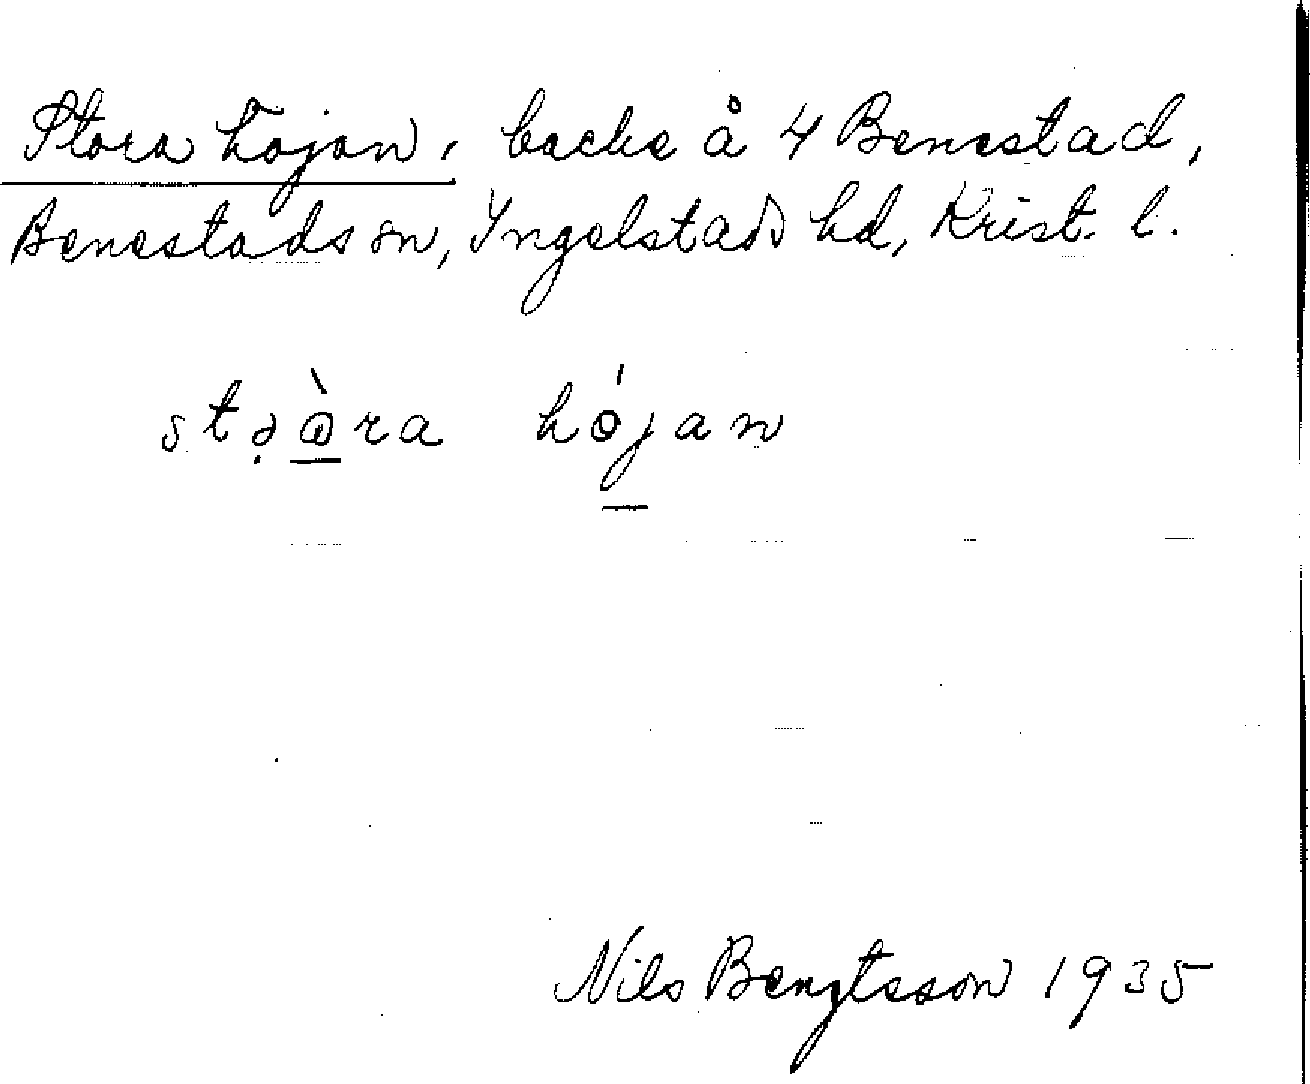 Stora höjan, backe å 4 Benestad,
Benestads sn, Ingelstads hd, Krist. l.
stə̣ὰra hǿjan
Nils Bengtsson 1935